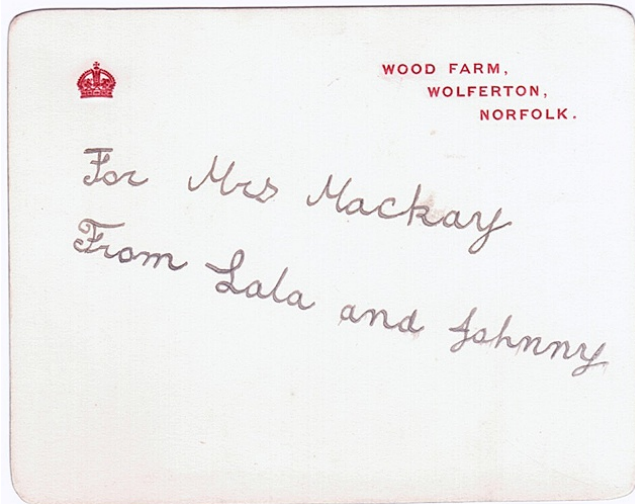 WOOD FARM,
WOLFERTON,
NORFOLK.
For Mrs Mackay
From Lala and Johnny